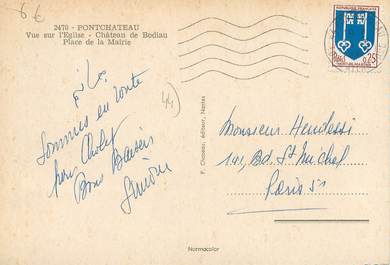 6€
2470 - PONTCHATEAU
Vue sur l'Eglise - Château de Bodiau
Place de la Mairie
(44)
Sommes en route
pour Cholet
Bons Baisers
Simone
P. Chapeau, éditeur, Nantes
REPUBLIQUE FRANÇAISE
0,25
POSTES
MONT-DE-MARSAN
Monsieur Hendessi
141, Bd. St Michel
Paris 5e
Normacolor